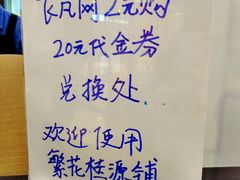 长凡网2元购
20元代金券
兑换处
欢迎使用
繁花桂源铺